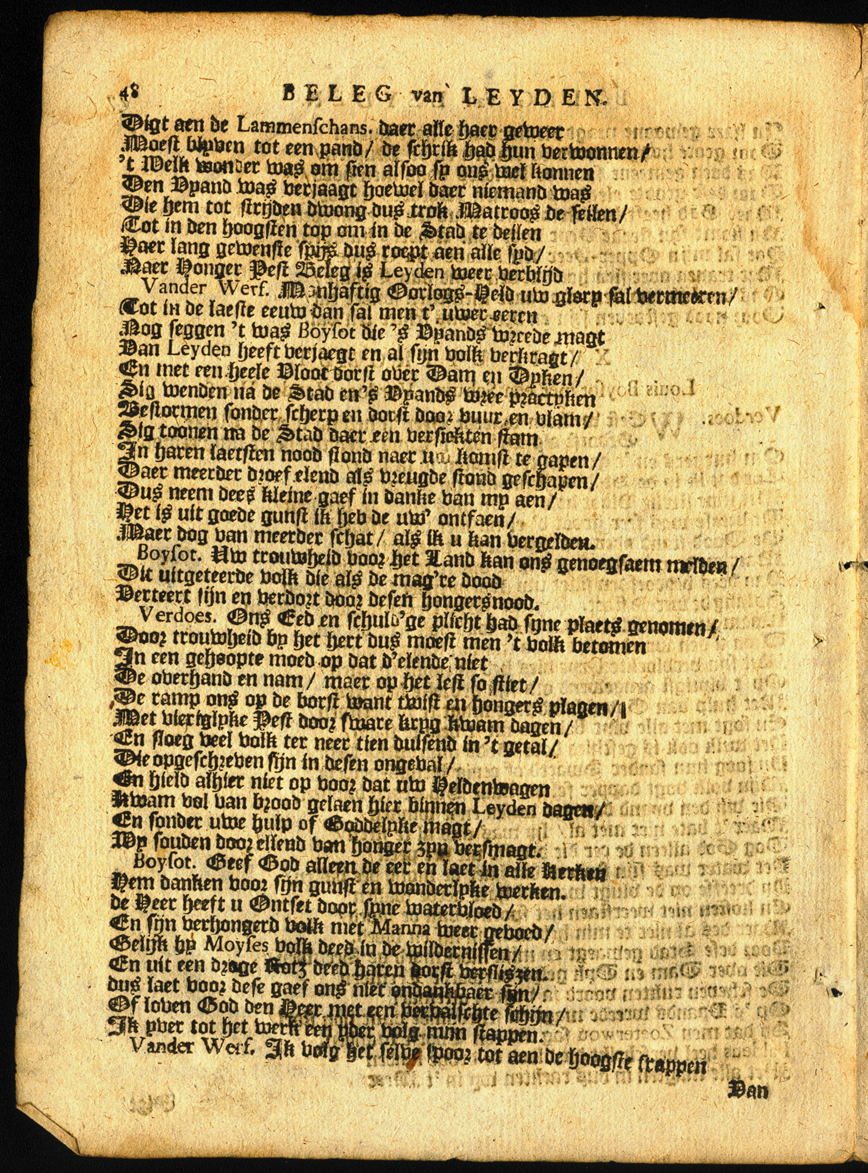 48 BELEG van LEYDEN.
Digt aen de Lammenschans. daer alle haer geweer
Moest blyven tot een pand / de schrik had hun verwonnen /
't Welk wonder was om sien alsoo sy ons wel konnen
Den Vyand was verjaagt hoewel daer niemand was
Die hem tot stryden dwong dus trok Matroos de seilen /
Tot in den hoogsten top om in de Stad te deilen
Haer lang gewenste spijs dus roept aen alle syd /
Naer Honger Pest Beleg is Leyden weer verblijd
Vander Werf. Manhaftig Oorlogs-Held uw glory sal vermeeren /
Tot in de laeste eeuw dan sal men t' uwer eeren
Nog seggen 't was Boysot die 's Vyands wreede magt
Van Leyden heeft verjaegt en al sijn volk verkragt /
En met een heele Vloot dorst over Dam en Dyken /
Sig wenden na de Stad en 's Vyands wree practyken
Bestormen sonder scherp en dorst door vuur en vlam /
Sig toonen na de Stad daer een versiekten stam
In haren laetsten nood stond naer uw komst te gapen /
Daer meerder droef elend als vreugde stond geschapen /
Dus neem dees kleine gaef in danke van my aen /
Het is uit goede gunst ik heb de uw' ontfaen /
Maer dog van meerder schat / als ik u kan vergelden.
Boysot. Uw trouwheid voor het Land kan ons genoegsaem melden /
Dit uitgeteerde volk die als de mag're dood
Verteert sijn en verdort door desen hongersnood.
Verdoes. Ons Eed en schuld'ge plicht had syne plaets genomen /
Door trouwheid by het hert dus moest men 't volk betomen
In een gehoopte moed op dat d'elende niet
De overhand en nam / maer op het lest so stiet /
De ramp ons op de borst want twist en hongers plagen /
Met vierigIyke Pest door sware kryg kwam dagen /
En sloeg veel volk ter neer tien duisend in 't getal /
Die opgeschreven sijn in desen ongeval /
En hield alhier niet op voor dat uw Heldenwagen
Kwam vol van brood gelaen hier binnen Leyden dagen /
En sonder uwe hulp of Goddelyke magt /
Wy souden door ellend van honger zyn versmagt.
Boysot. Geef God alleen de eer en laet in alle Kerken
Hem danken voor sijn gunst en wonderlyke werken.
de Heer heeft u Ontset door syne watervloed /
En sijn verhongerd volk met Manna weer gevoed /
Gelijk hy Moyses volk deed in de wildernissen /
En uit een droge Rotz deed haren dorst verslissen.
dus laet voor dese gaef ons niet ondankbaer sijn /
Of loven God den Heer met een vervalschte schijn /
Ik yver tot het werk een yder volg mijn stappen.
Vander Werf. Ik volg het selve spoor tot aen de hoogste trappen
Dan